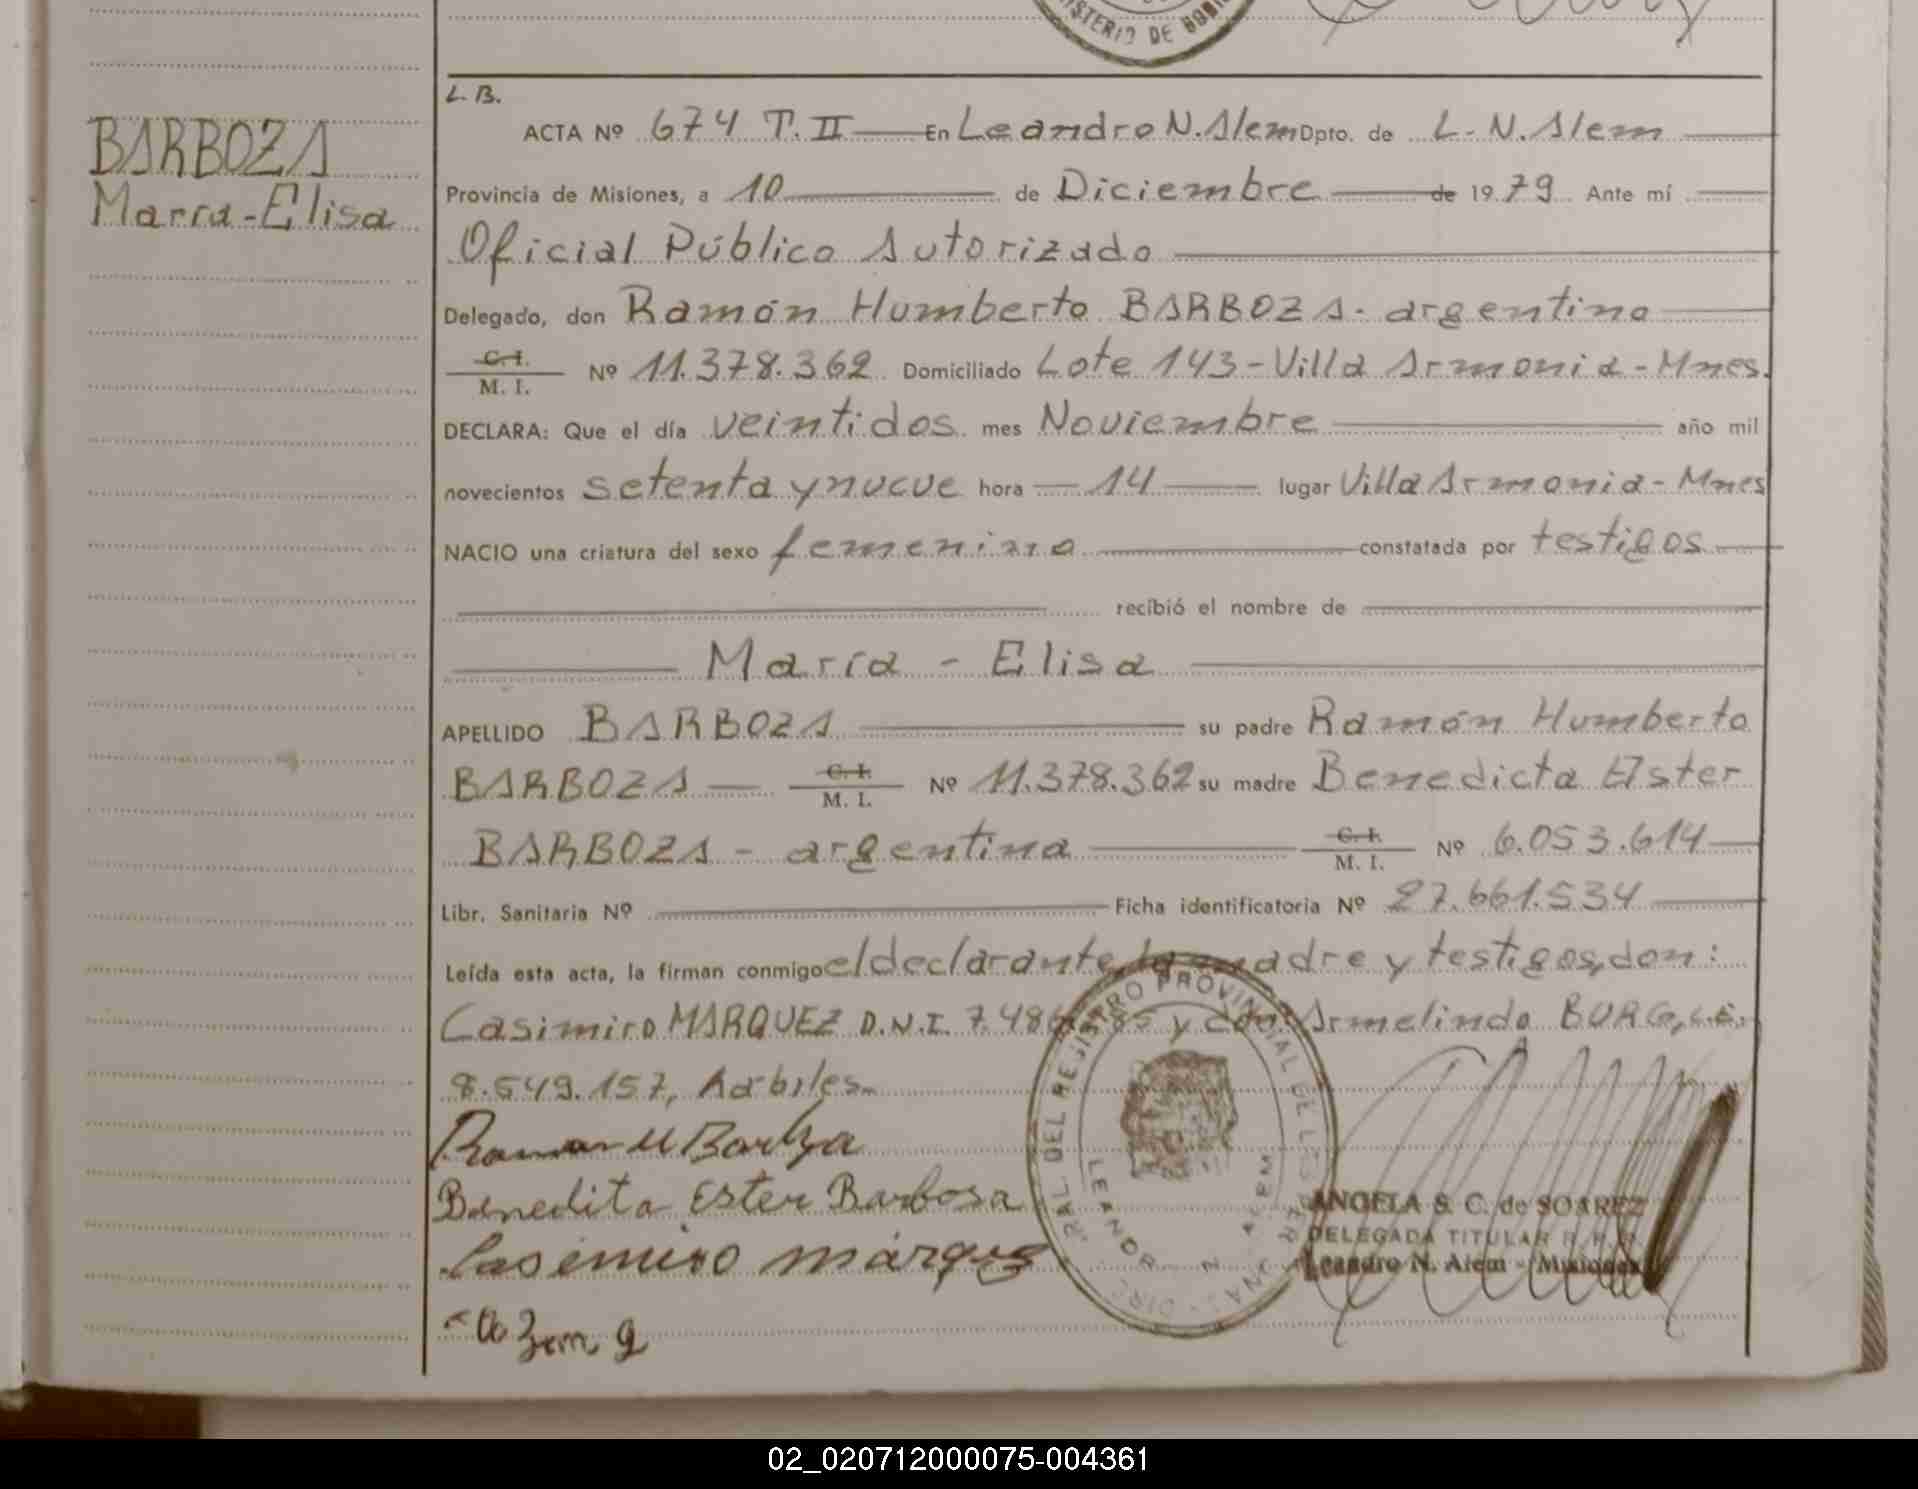 MINISTERIO DE GOBIE
L. B.
BARBOZA
María-Elisa
ACTA Nº 674 T. II En Leandro N. Alem Dpto. de L. N. Alem
Provincia de Misiones, a 10 de Diciembre de 1979 Ante mí
Oficial Público Autorizado
Delegado, don Ramón Humberto BARBOZA. argentino
C. I.
M. I. Nº 11.378.362 Domiciliado Lote 143-Villa Armonia-Mnes.
DECLARA: Que el día veintidos mes Noviembre año mil
novecientos setenta y nueve hora 14 lugar Villa Armonia-Mnes
NACIO una criatura del sexo femenino constatada por testigos
recibió el nombre de
María - Elisa
APELLIDO BARBOZA su padre Ramón Humberto
BARBOZA C. I. M. I. Nº 11.378.362 su madre Benedicta Ester
BARBOZA - argentina C. I. M. I. Nº 6.053.614
Libr. Sanitaria Nº Ficha identificatoria Nº 27.661.534
Leída esta acta, la firman conmigo el declarante, la madre y testigos, don:
Casimiro MARQUEZ D.N.I. y don Armelindo BURG, L.E.
8.549.157, hábiles.
Ramon H Barboza
Benedita Ester Barbosa
Casimiro márquez
DEL REGISTRO PROVINCIAL DE LAS PERSONAS
LEANDRO N. ALEM
ANGELA S. C. de SOAREZ
DELEGADA TITULAR R. P. P.
Leandro N. Alem - Misiones
02_020712000075-004361